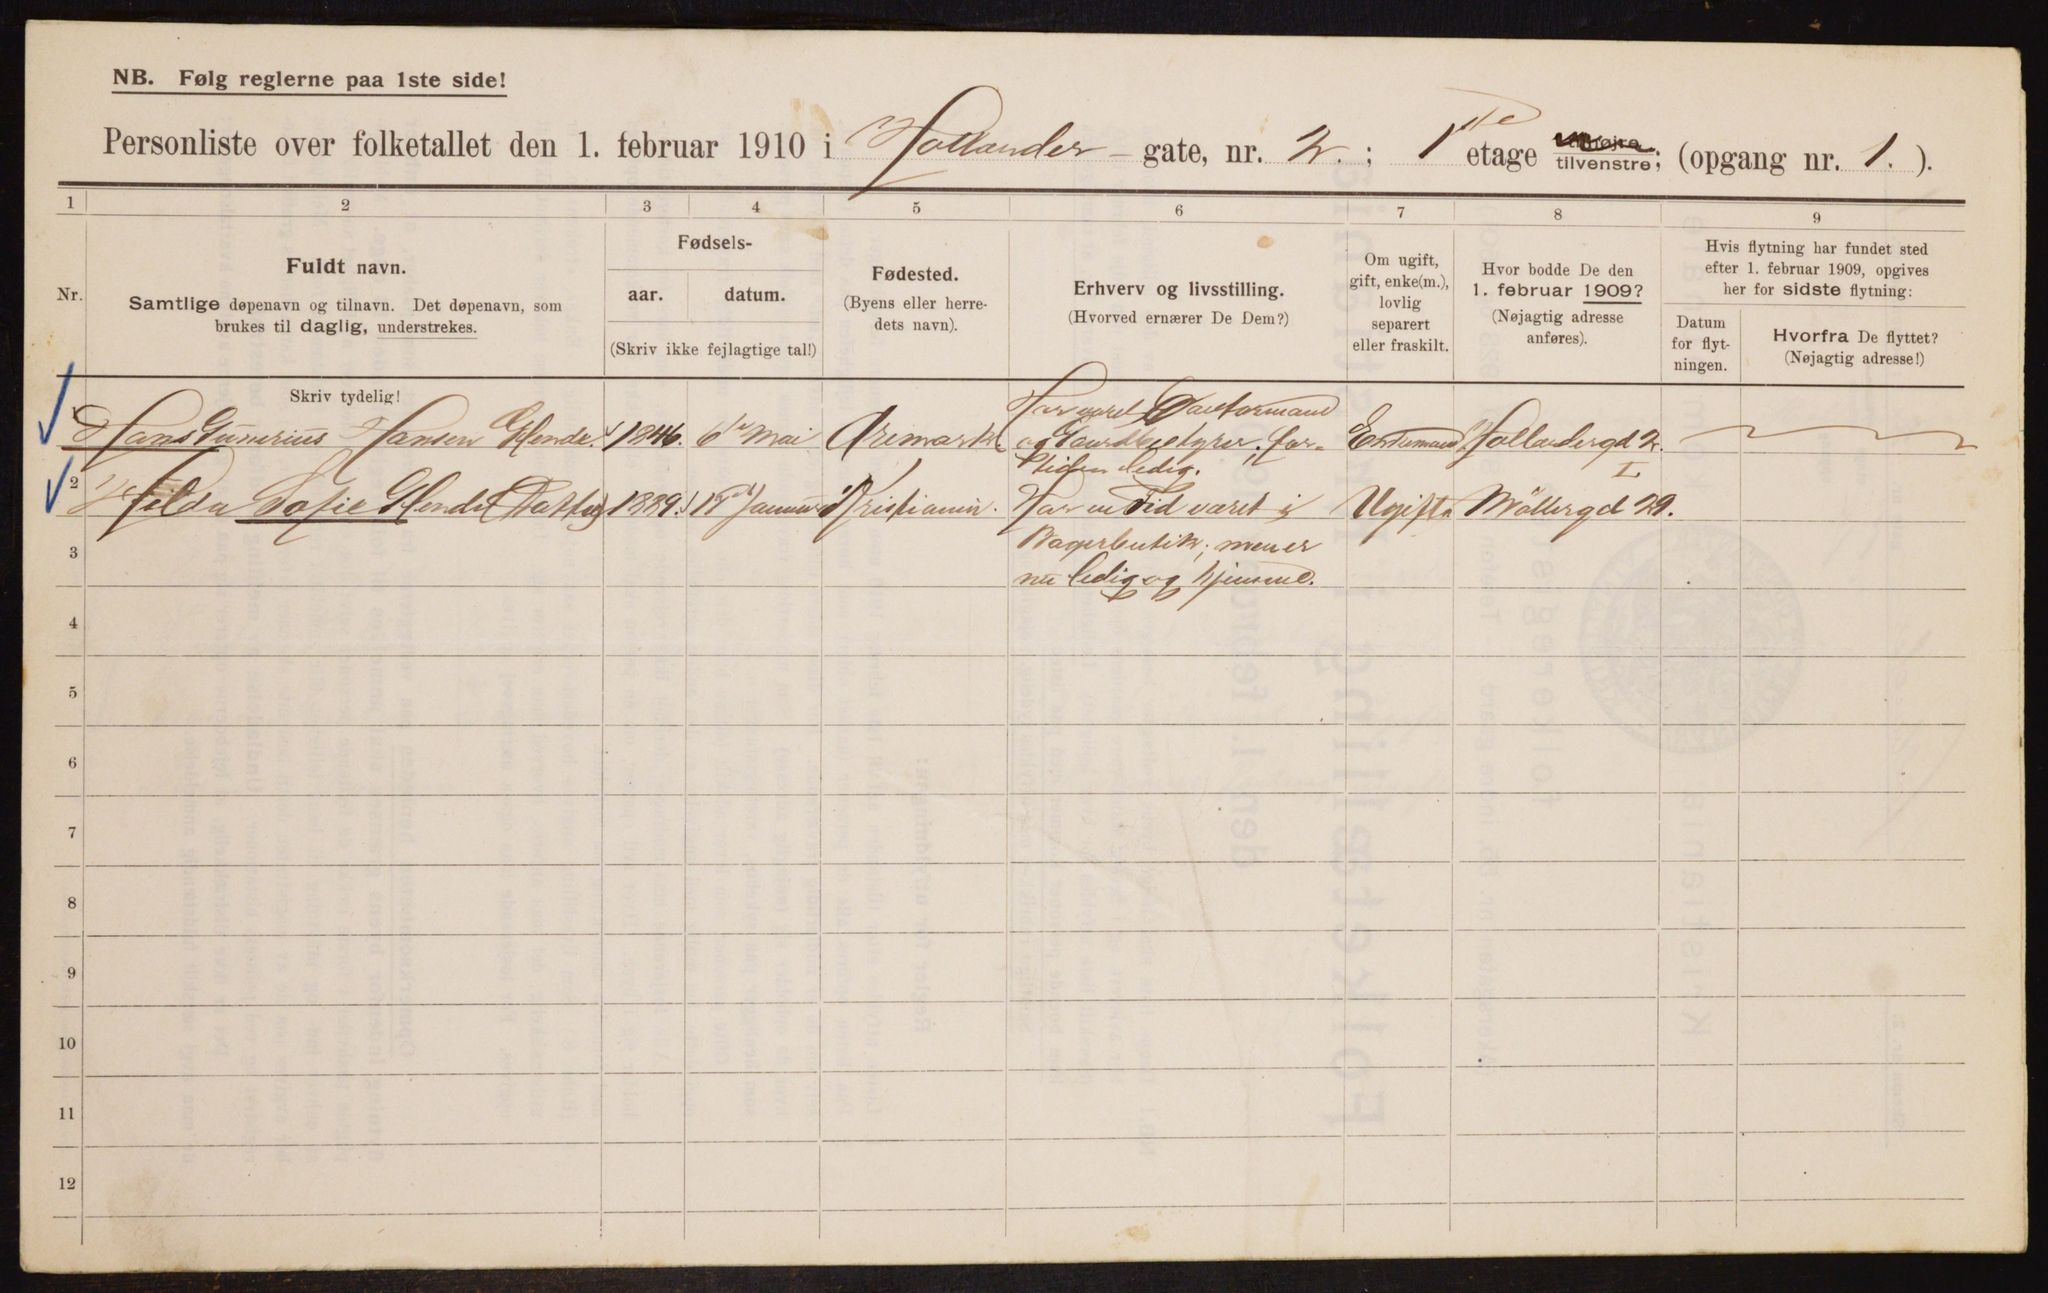 NB. Følg reglerne paa 1ste side!
Personliste over folketallet den 1. februar 1910 i Hollander- gate, nr. 2. ; 1ste etage tilhøjre tilvenstre; (opgang nr. 1. ).
1 2 3 4 5 6 7 8 9
Nr.
Fuldt navn.
Samtlige døpenavn og tilnavn. Det døpenavn, som
brukes til daglig, understrekes.
Fødsels-
aar. datum.
(Skriv ikke fejlagtige tal!)
Fødested.
(Byens eller herre-
dets navn).
Erhverv og livsstilling.
(Hvorved ernærer De Dem?)
Om ugift,
gift, enke(m.),
lovlig
separert
eller fraskilt.
Hvor bodde De den
1. februar 1909?
(Nøjagtig adresse
anføres).
Hvis flytning har fundet sted
efter 1. februar 1909, opgives
her for sidste flytning:
Datum
for flyt-
ningen.
Hvorfra De flyttet?
(Nøjagtig adresse!)
Skriv tydelig!
1 Hans Gunerius Hansen Glende. 1846. 6te Mai Aremark Har været
og Gaardbestyrer, for-
tiden ledig. Enkemand Hollandergd 2.
I.
2 Helda Sofie Glende (Datter) 1889. Januar Kristiania. Har en Tid været i
Bagerbutik; men er
nu ledig og hjemme. Ugift Möllergd 29.
3
4
5
6
7
8
9
10
11
12